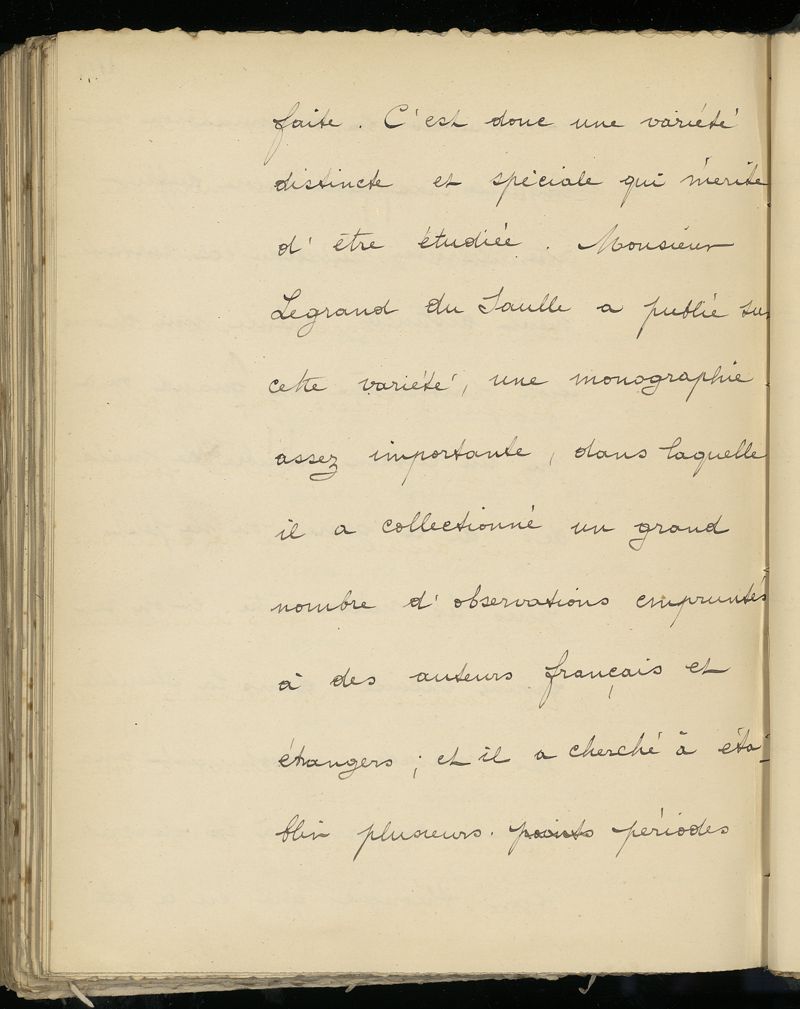 faite. C'est donc une variété
distincte et spéciale qui mérite
d'être étudiée. Monsieur
Legrand du Saulle a publié sur
cette variété, une monographie
assez importante, dans laquelle
il a collectionné un grand
nombre d'observations empruntés
à des auteurs français et
étrangers ; et il a cherché à éta-
blir plusieurs points périodes